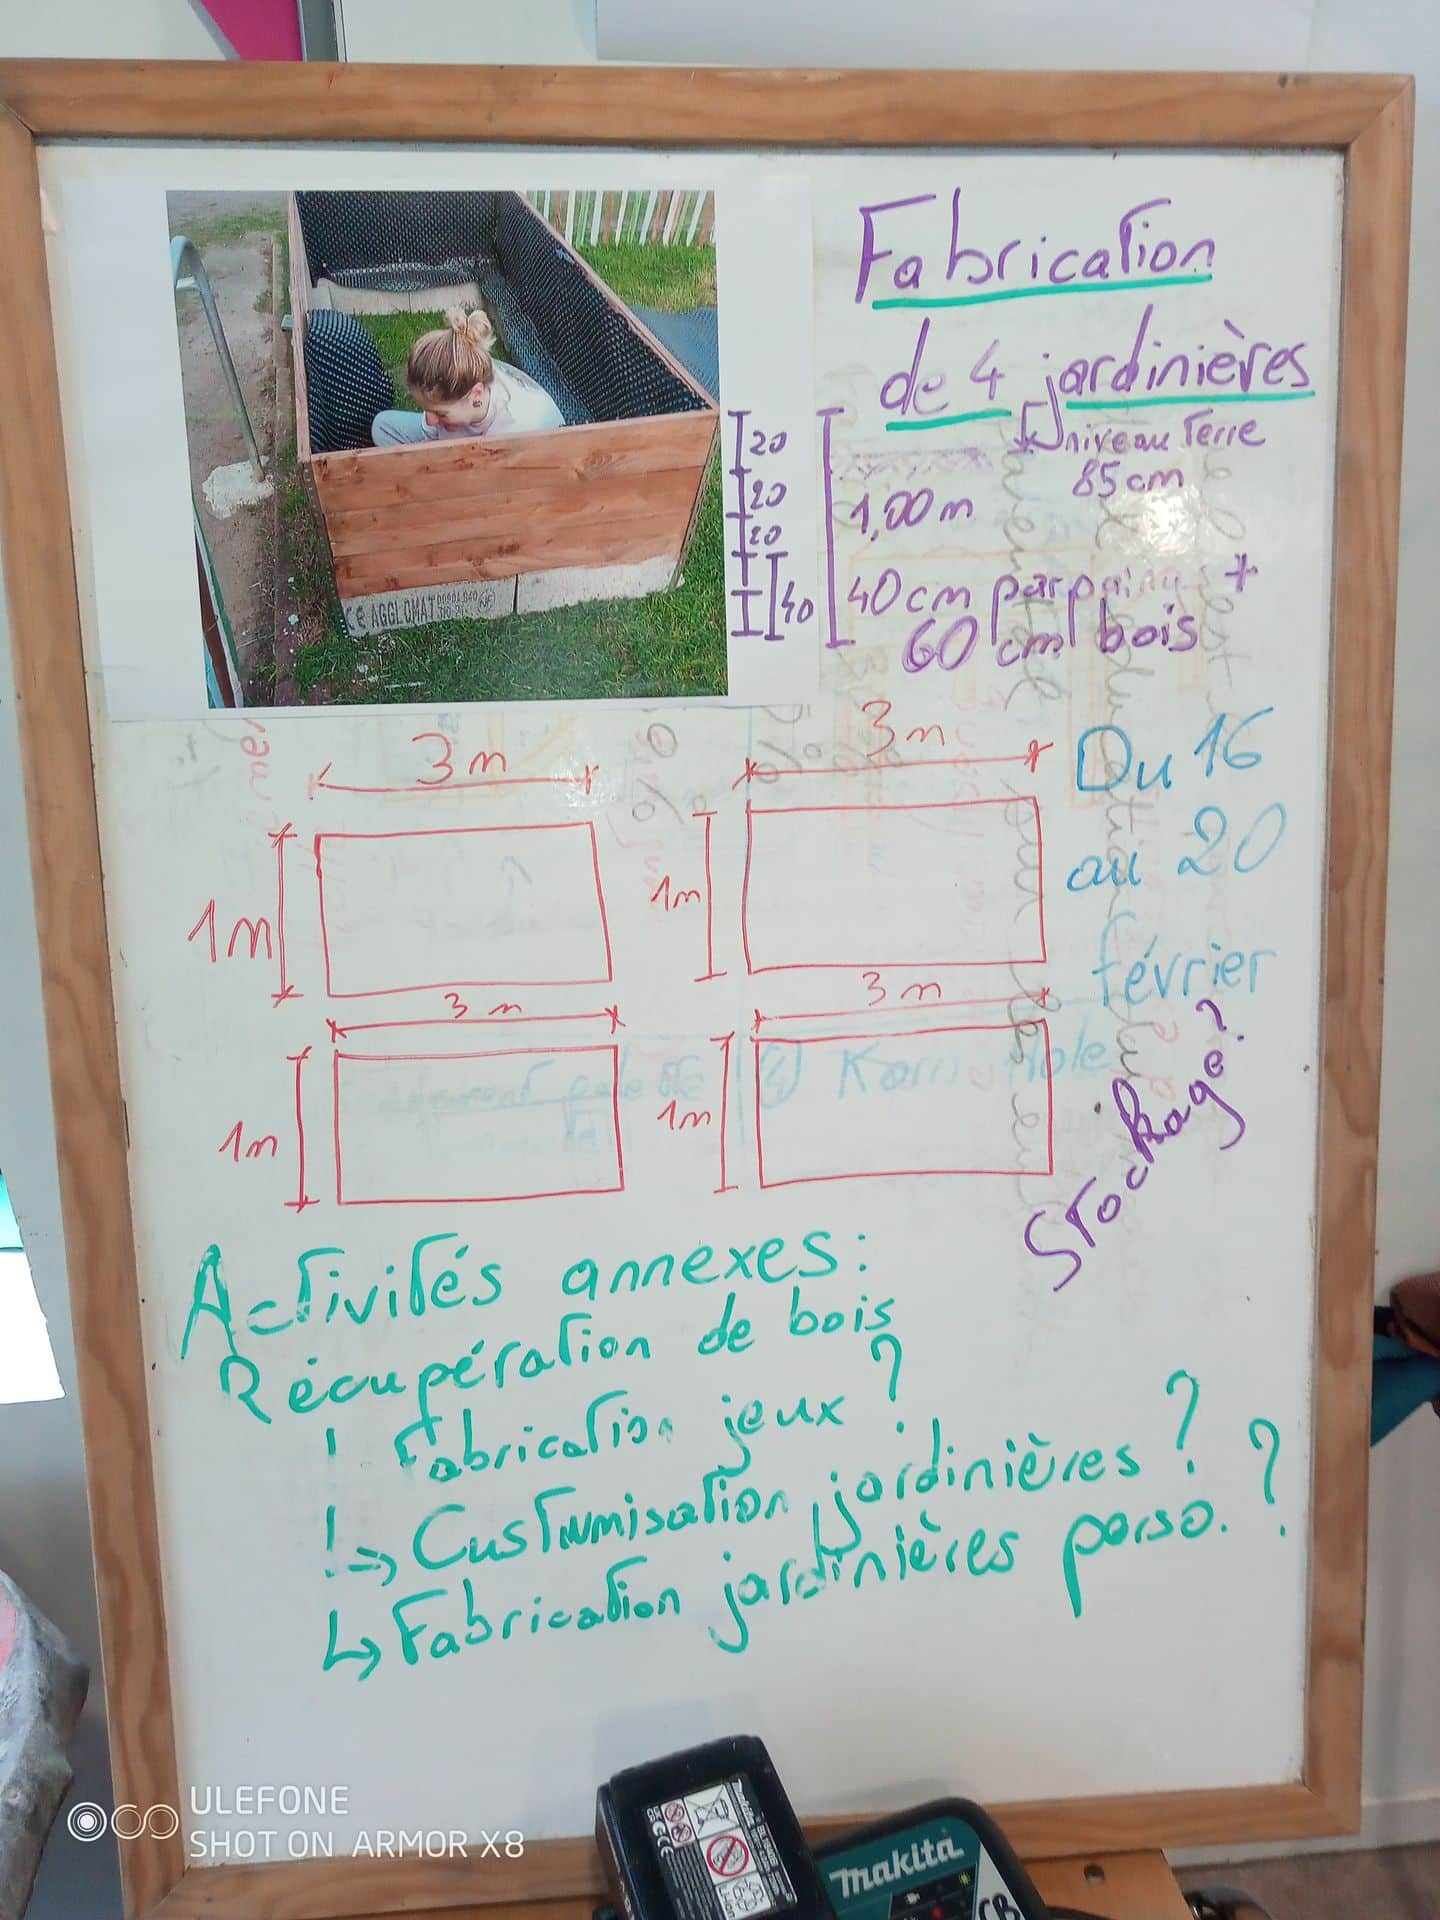 Fabrication
de 4 jardinières
niveau terre
85 cm
20
20
20
40
1,00 m
40 cm parpaings +
60 cm bois
CE AGGLOMAT
NF
3 m
1 m
3 m
1 m
Du 16
au 20
février
3 m
1 m
3 m
1 m
Korn Hole
Stockage?
Activités annexes:
Récupération de bois
Fabrication jeux ?
↳ Customisation jardinières ?
↳ Fabrication jardinières perso. ?
ULEFONE
SHOT ON ARMOR X8
makita
Li-ion
makita